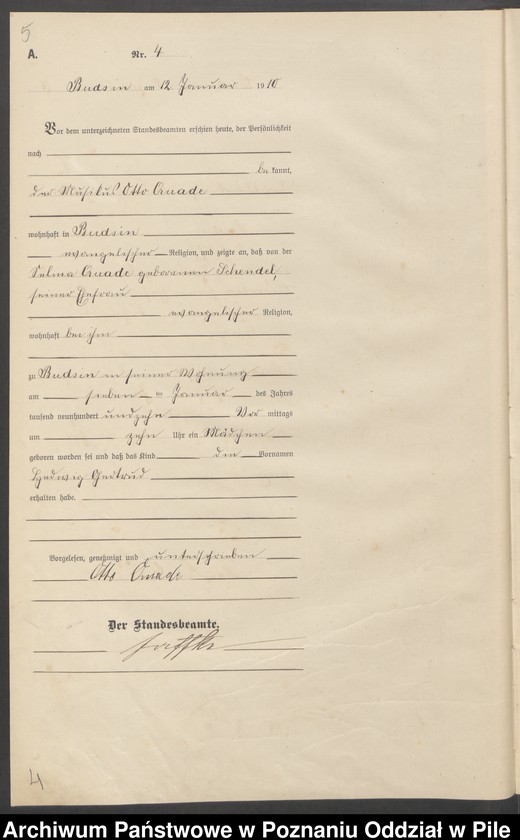 5
A.
Nr. 4
Budsin am 12. Januar 1910
Vor dem unterzeichneten Standesbeamten erschien heute, der Persönlichkeit
nach
be kannt,
der Musikus Otto Quade
wohnhaft in Budsin
evangelischer Religion, und zeigte an, daß von der
Selma Quade geborenen Schendel,
seiner Ehefrau
evangelischer Religion,
wohnhaft bei ihm
zu Budsin in seiner Wohnung
am sieben ten Januar des Jahres
tausend neunhundert undzehn Vor mittags
um zehn Uhr ein Mädchen
geboren worden sei und daß das Kind den Vornamen
Hedwig Gertrud
erhalten habe.
Vorgelesen, genehmigt und unterschrieben
Otto Quade
Der Standesbeamte.
4
Archiwum Państwowe w Poznaniu Oddział w Pile